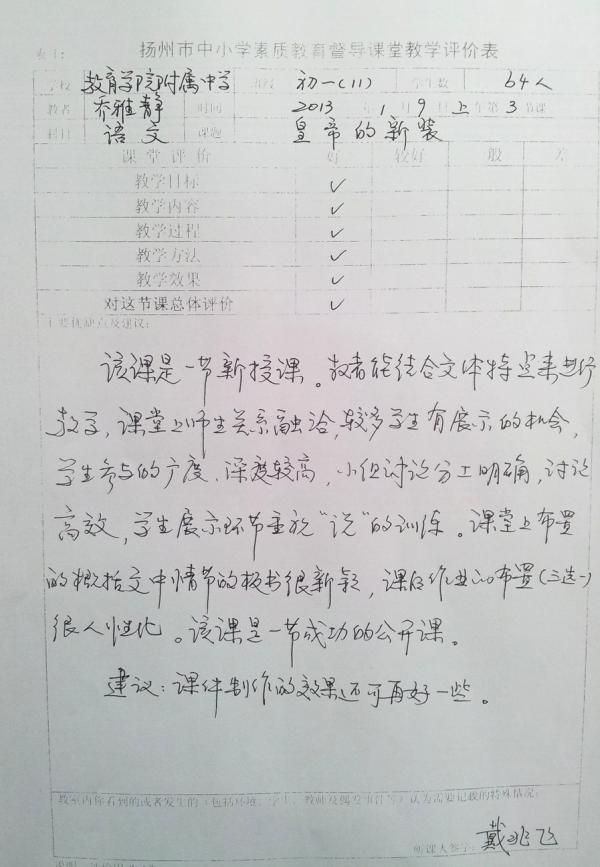 表1:
扬州市中小学素质教育督导课堂教学评价表
学校 教育学院附属中学 班级 初一(11) 学生数 64人
教者 乔雅静 时间 2013年1月9日上午第3节课
科目 语文 课题 皇帝的新装
课堂评价 好 较好 一般 差
教学目标 ✓
教学内容 ✓
教学过程 ✓
教学方法 ✓
教学效果 ✓
对这节课总体评价 ✓
主要优缺点及建议:
该课是一节新授课。教者能结合文体特点来进行
教学,课堂上师生关系融洽,较多学生有展示的机会,
学生参与的广度、深度较高,小组讨论分工明确,讨论
高效,学生展示环节重视“说”的训练。课堂上布置
的概括文中情节的板书很新颖,课后作业的布置(三选一)
很人性化。该课是一节成功的公开课。
建议:课件制作的效果还可再好一些。
教室内你看到的或者发生的(包括环境、学生、教师及偶发事件等)认为需要记载的特殊情况:
听课人签字: 戴兆飞